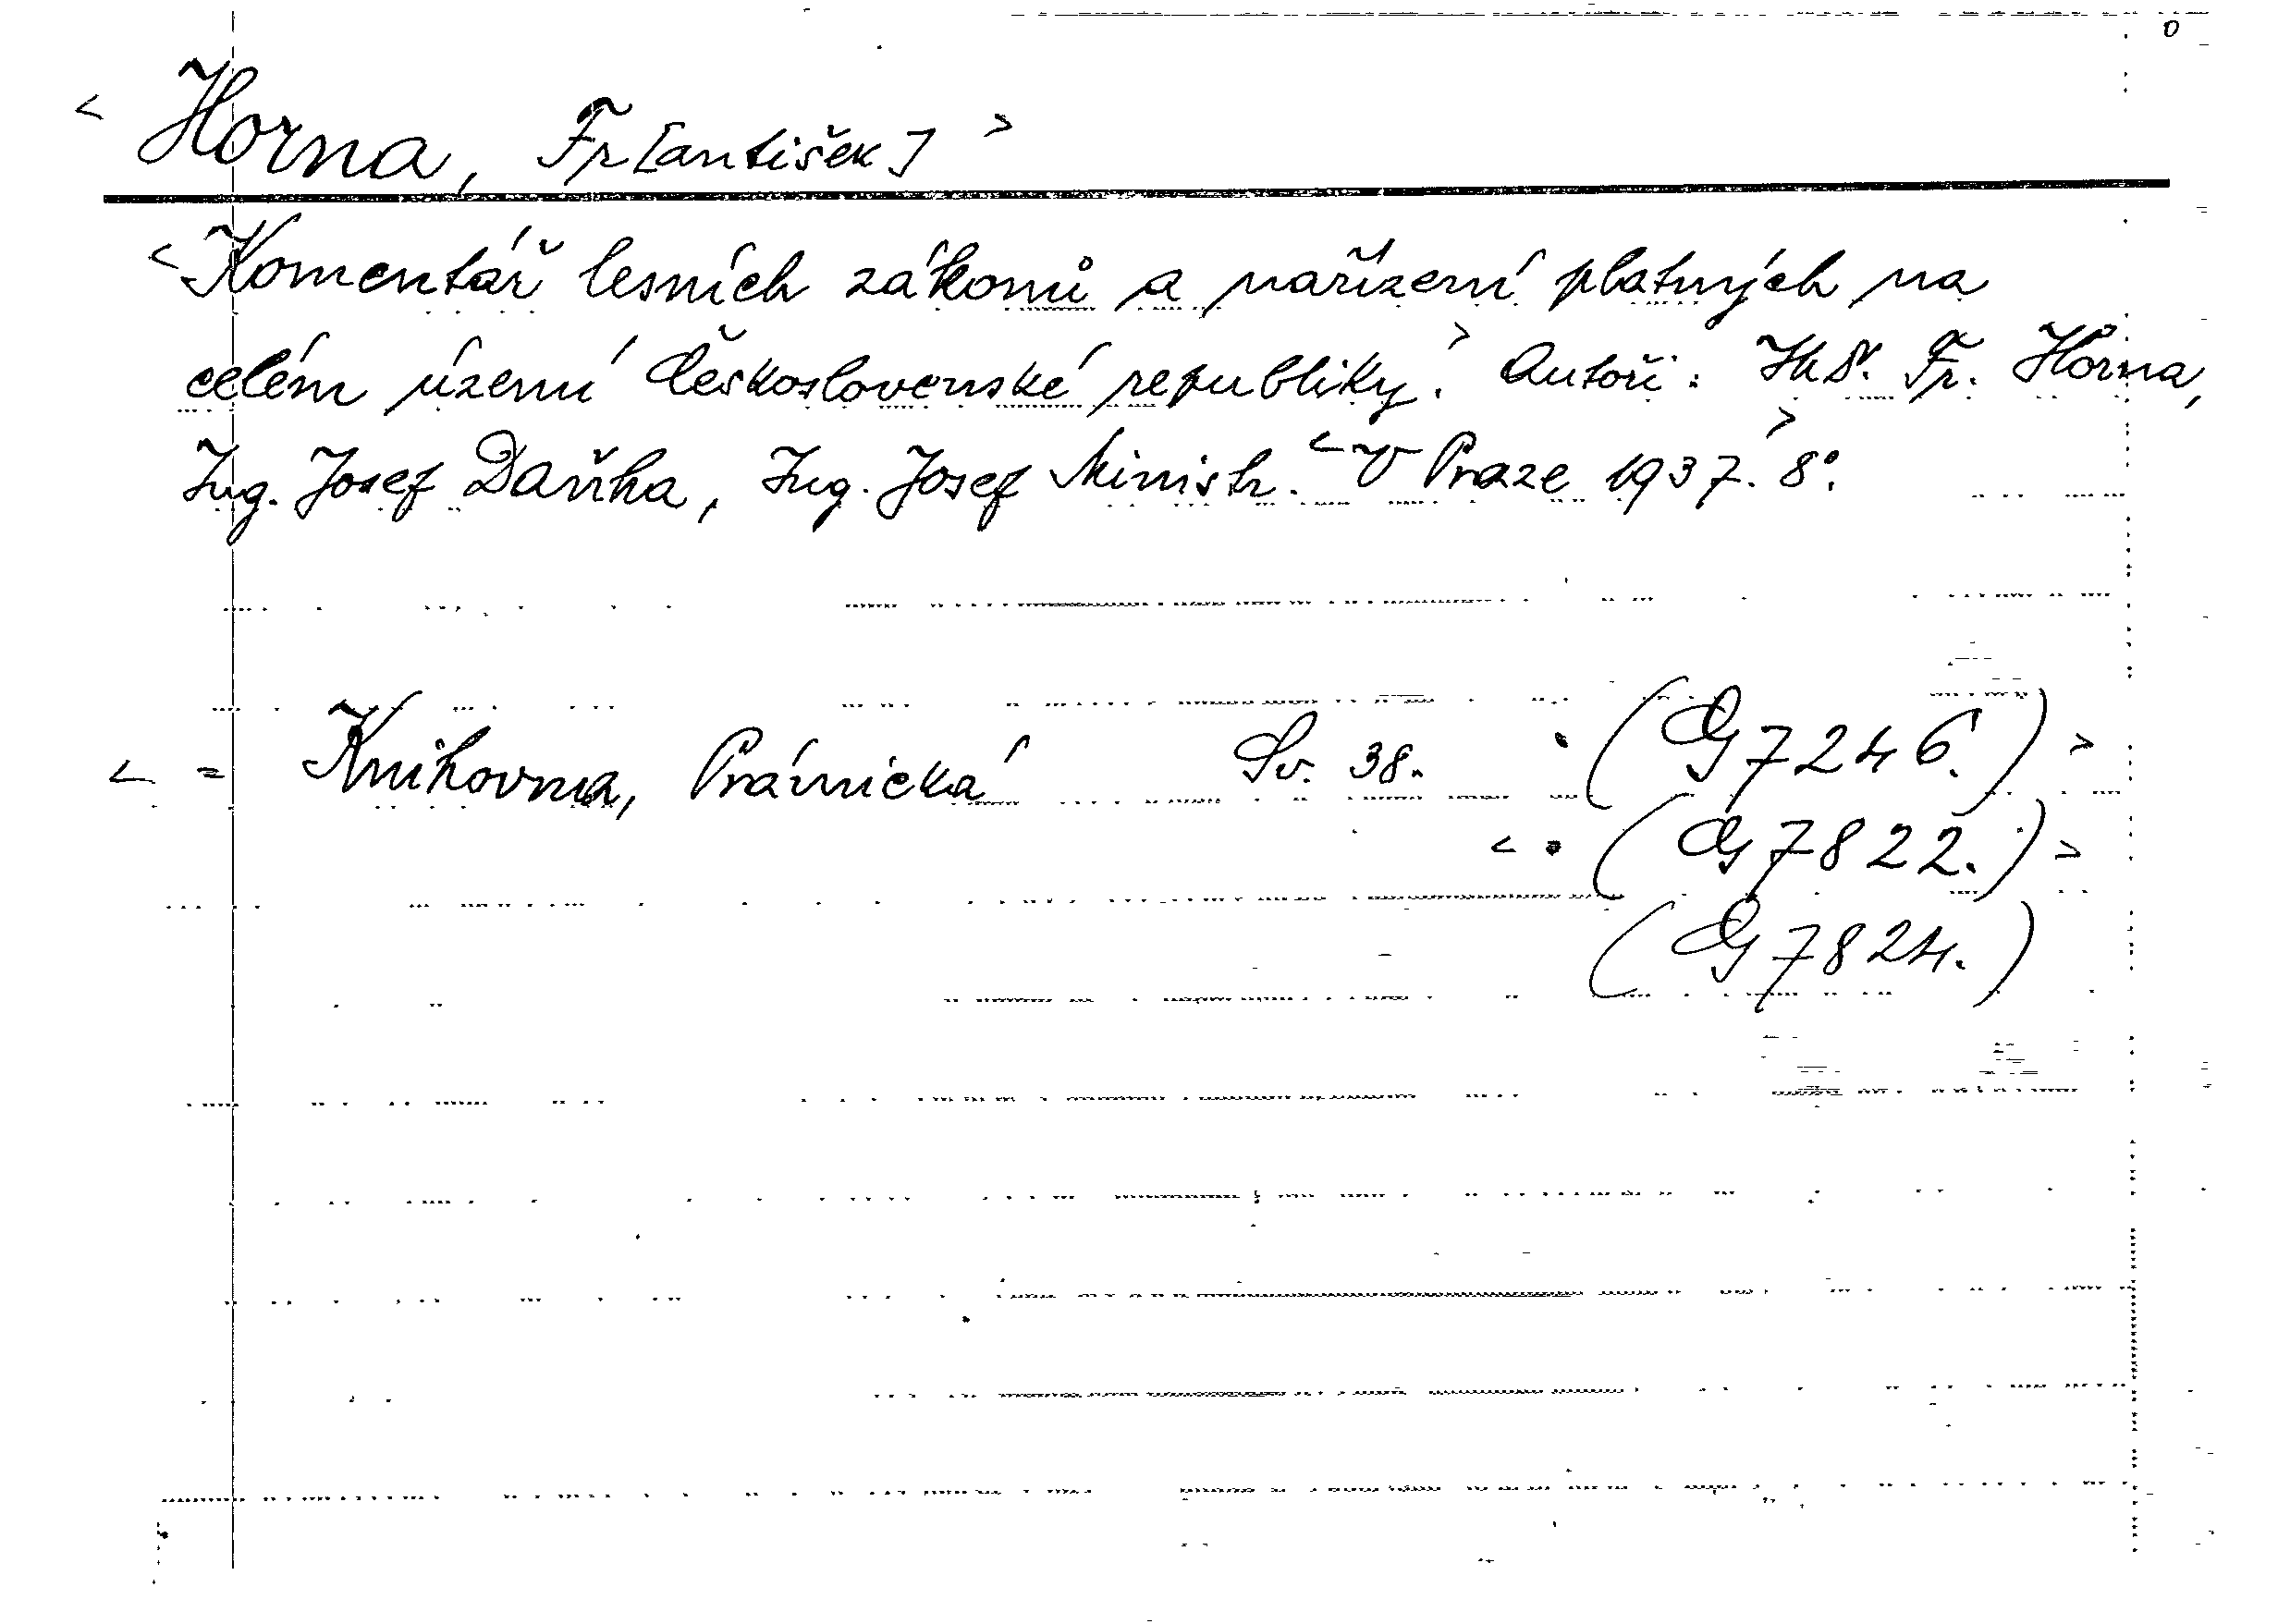 < Horna, Fr[antišek] >
< Komentář lesních zákonů a nařízení platných na
celém území Československé republiky.> Autoři: Fr. Horna,
Ing. Josef Daňha, Ing. Josef Ministr. < V Praze 1937.> 8°.
< = Knihovna, Právnická Sv. 38. • (G 7246.) >
< • (G 7822.) >
(G 7824.)